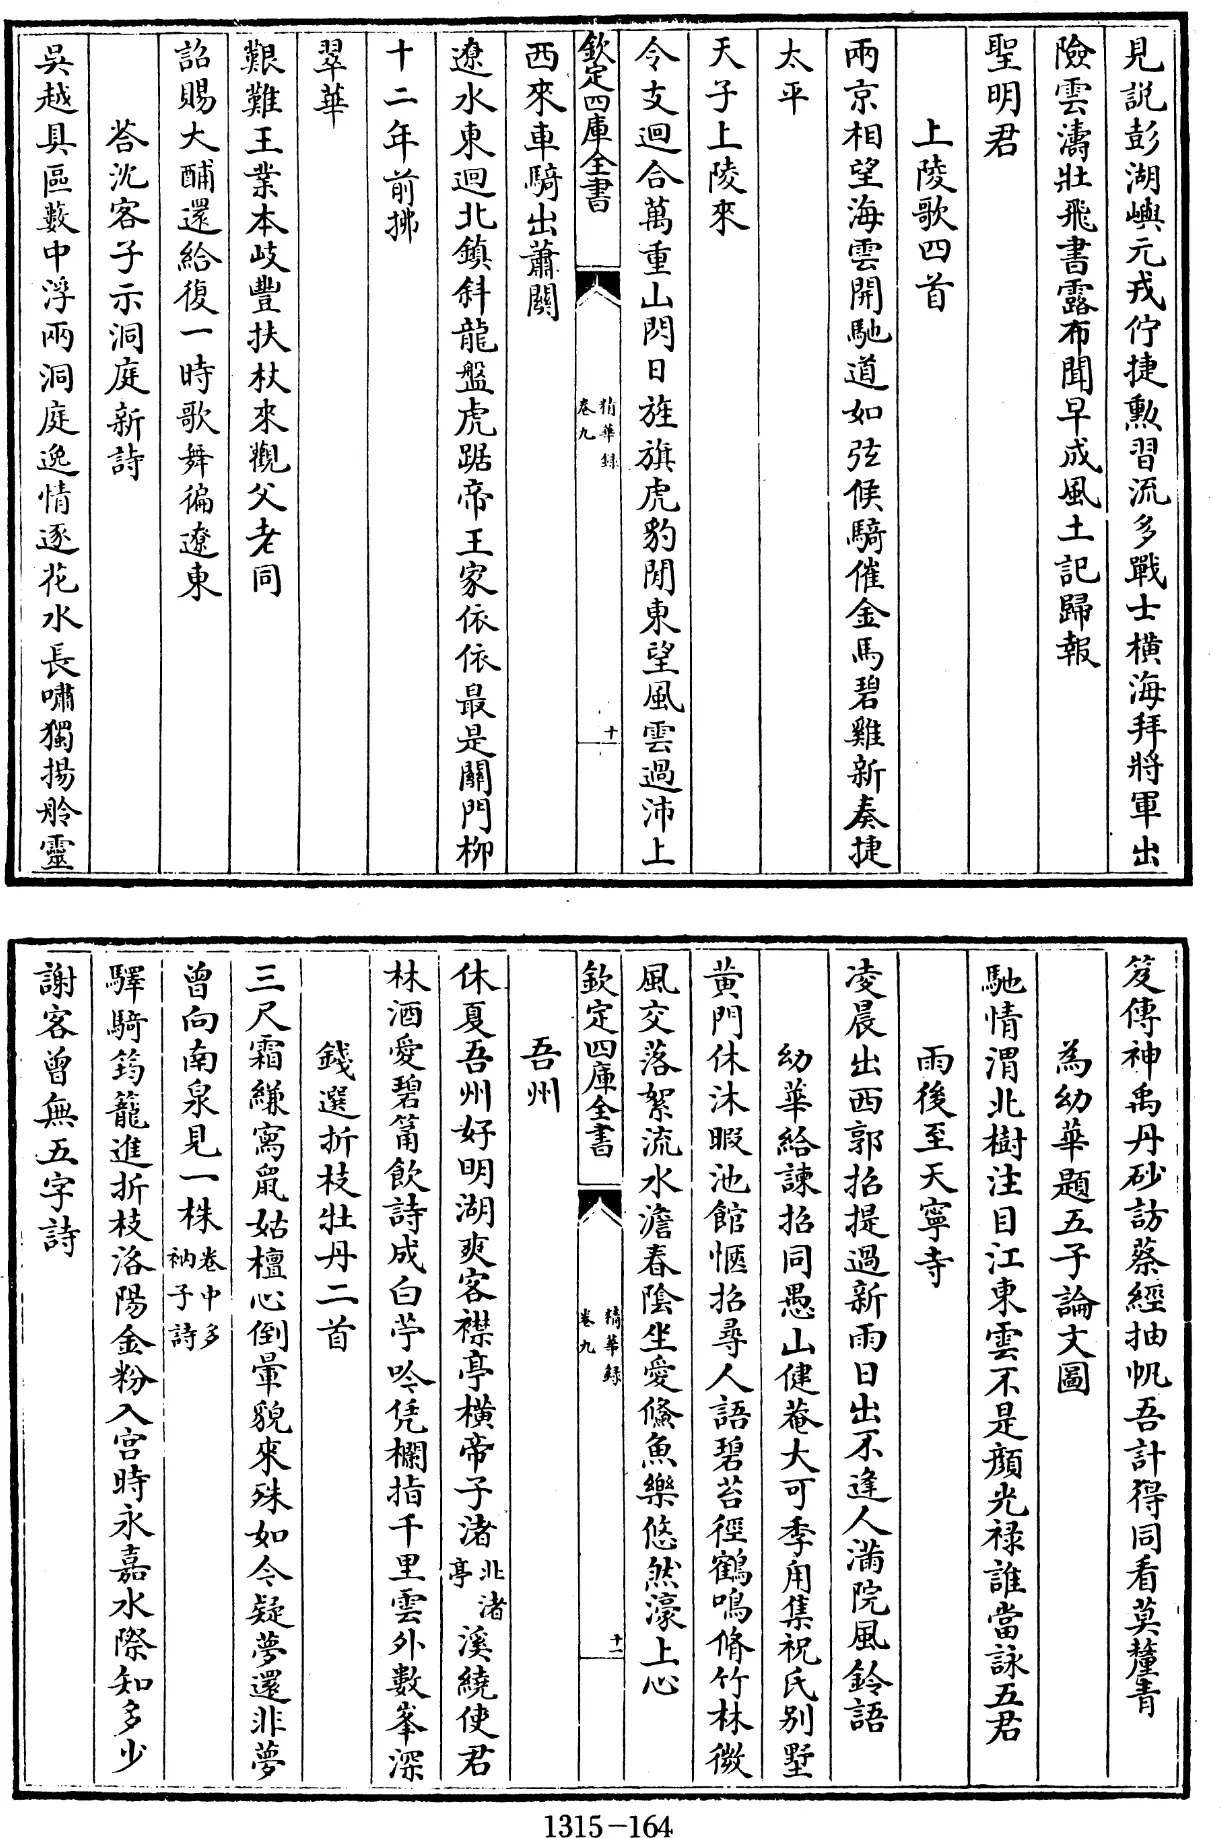 見説彭湖嶼元戎佇捷勲習流多戰士橫海拜將軍出
險雲濤壯飛書露布聞早成風土記歸報
聖明君
上陵歌四首
兩京相望海雲開馳道如弦候騎催金馬碧雞新奏捷
太平
天子上陵來
令支迴合萬重山閃日旌旗虎豹閒東望風雲過沛上
欽定四庫全書
精華録
卷九
十
西來車騎出蕭關
遼水東迴北鎮斜龍盤虎踞帝王家依依最是關門柳
十二年前拂
翠華
艱難王業本岐豐扶杖來觀父老同
詔賜大酺還給復一時歌舞徧遼東
荅沈客子示洞庭新詩
吳越具區藪中浮兩洞庭逸情逐花水長嘯獨揚舲靈
笈傳神禹丹砂訪蔡經抽帆吾計得同看莫釐青
為幼華題五子論文圖
馳情渭北樹注目江東雲不是顔光禄誰當詠五君
雨後至天寧寺
凌晨出西郭招提過新雨日出不逢人滿院風鈴語
幼華給諫招同愚山健菴大可季用集祝氏别墅
黄門休沐暇池館愜招尋人語碧苔徑鶴鳴脩竹林微
風交落絮流水澹春陰坐愛鯈魚樂悠然濠上心
欽定四庫全書
精華録
卷九
十一
吾州
休夏吾州好明湖爽客襟亭橫帝子渚北渚亭溪繞使君
林酒愛碧筩飲詩成白苧吟凭欄指千里雲外數峯深
錢選折枝牡丹二首
三尺霜縑寫鼠姑檀心倒暈貌來殊如今疑夢還非夢
曾向南泉見一株卷中多衲子詩
驛騎筠籠進折枝洛陽金粉入宫時永嘉水際知多少
謝客曾無五字詩
1315-164